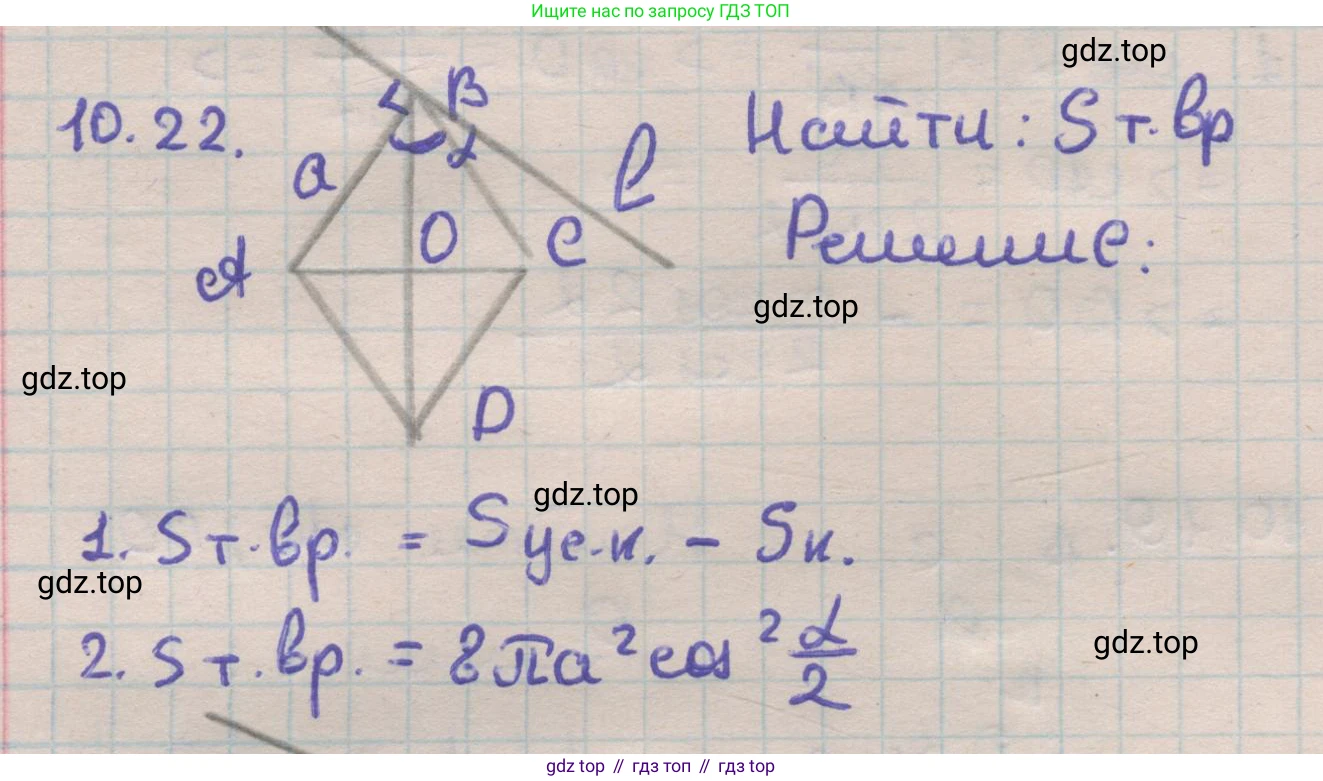 Ищите нас по запросу ГДЗ ТОП
gdz.top
10.22.
B
Найти: Sт.вр
a
α
l
A
O
C
Решение:
gdz.top
gdz.top
D
gdz.top
1. Sт.вр. = Sус.к. - Sк.
gdz.top
2. Sт.вр. = 8πa² cos² α/2
gdz.top
gdz top // гдз топ // gdz top